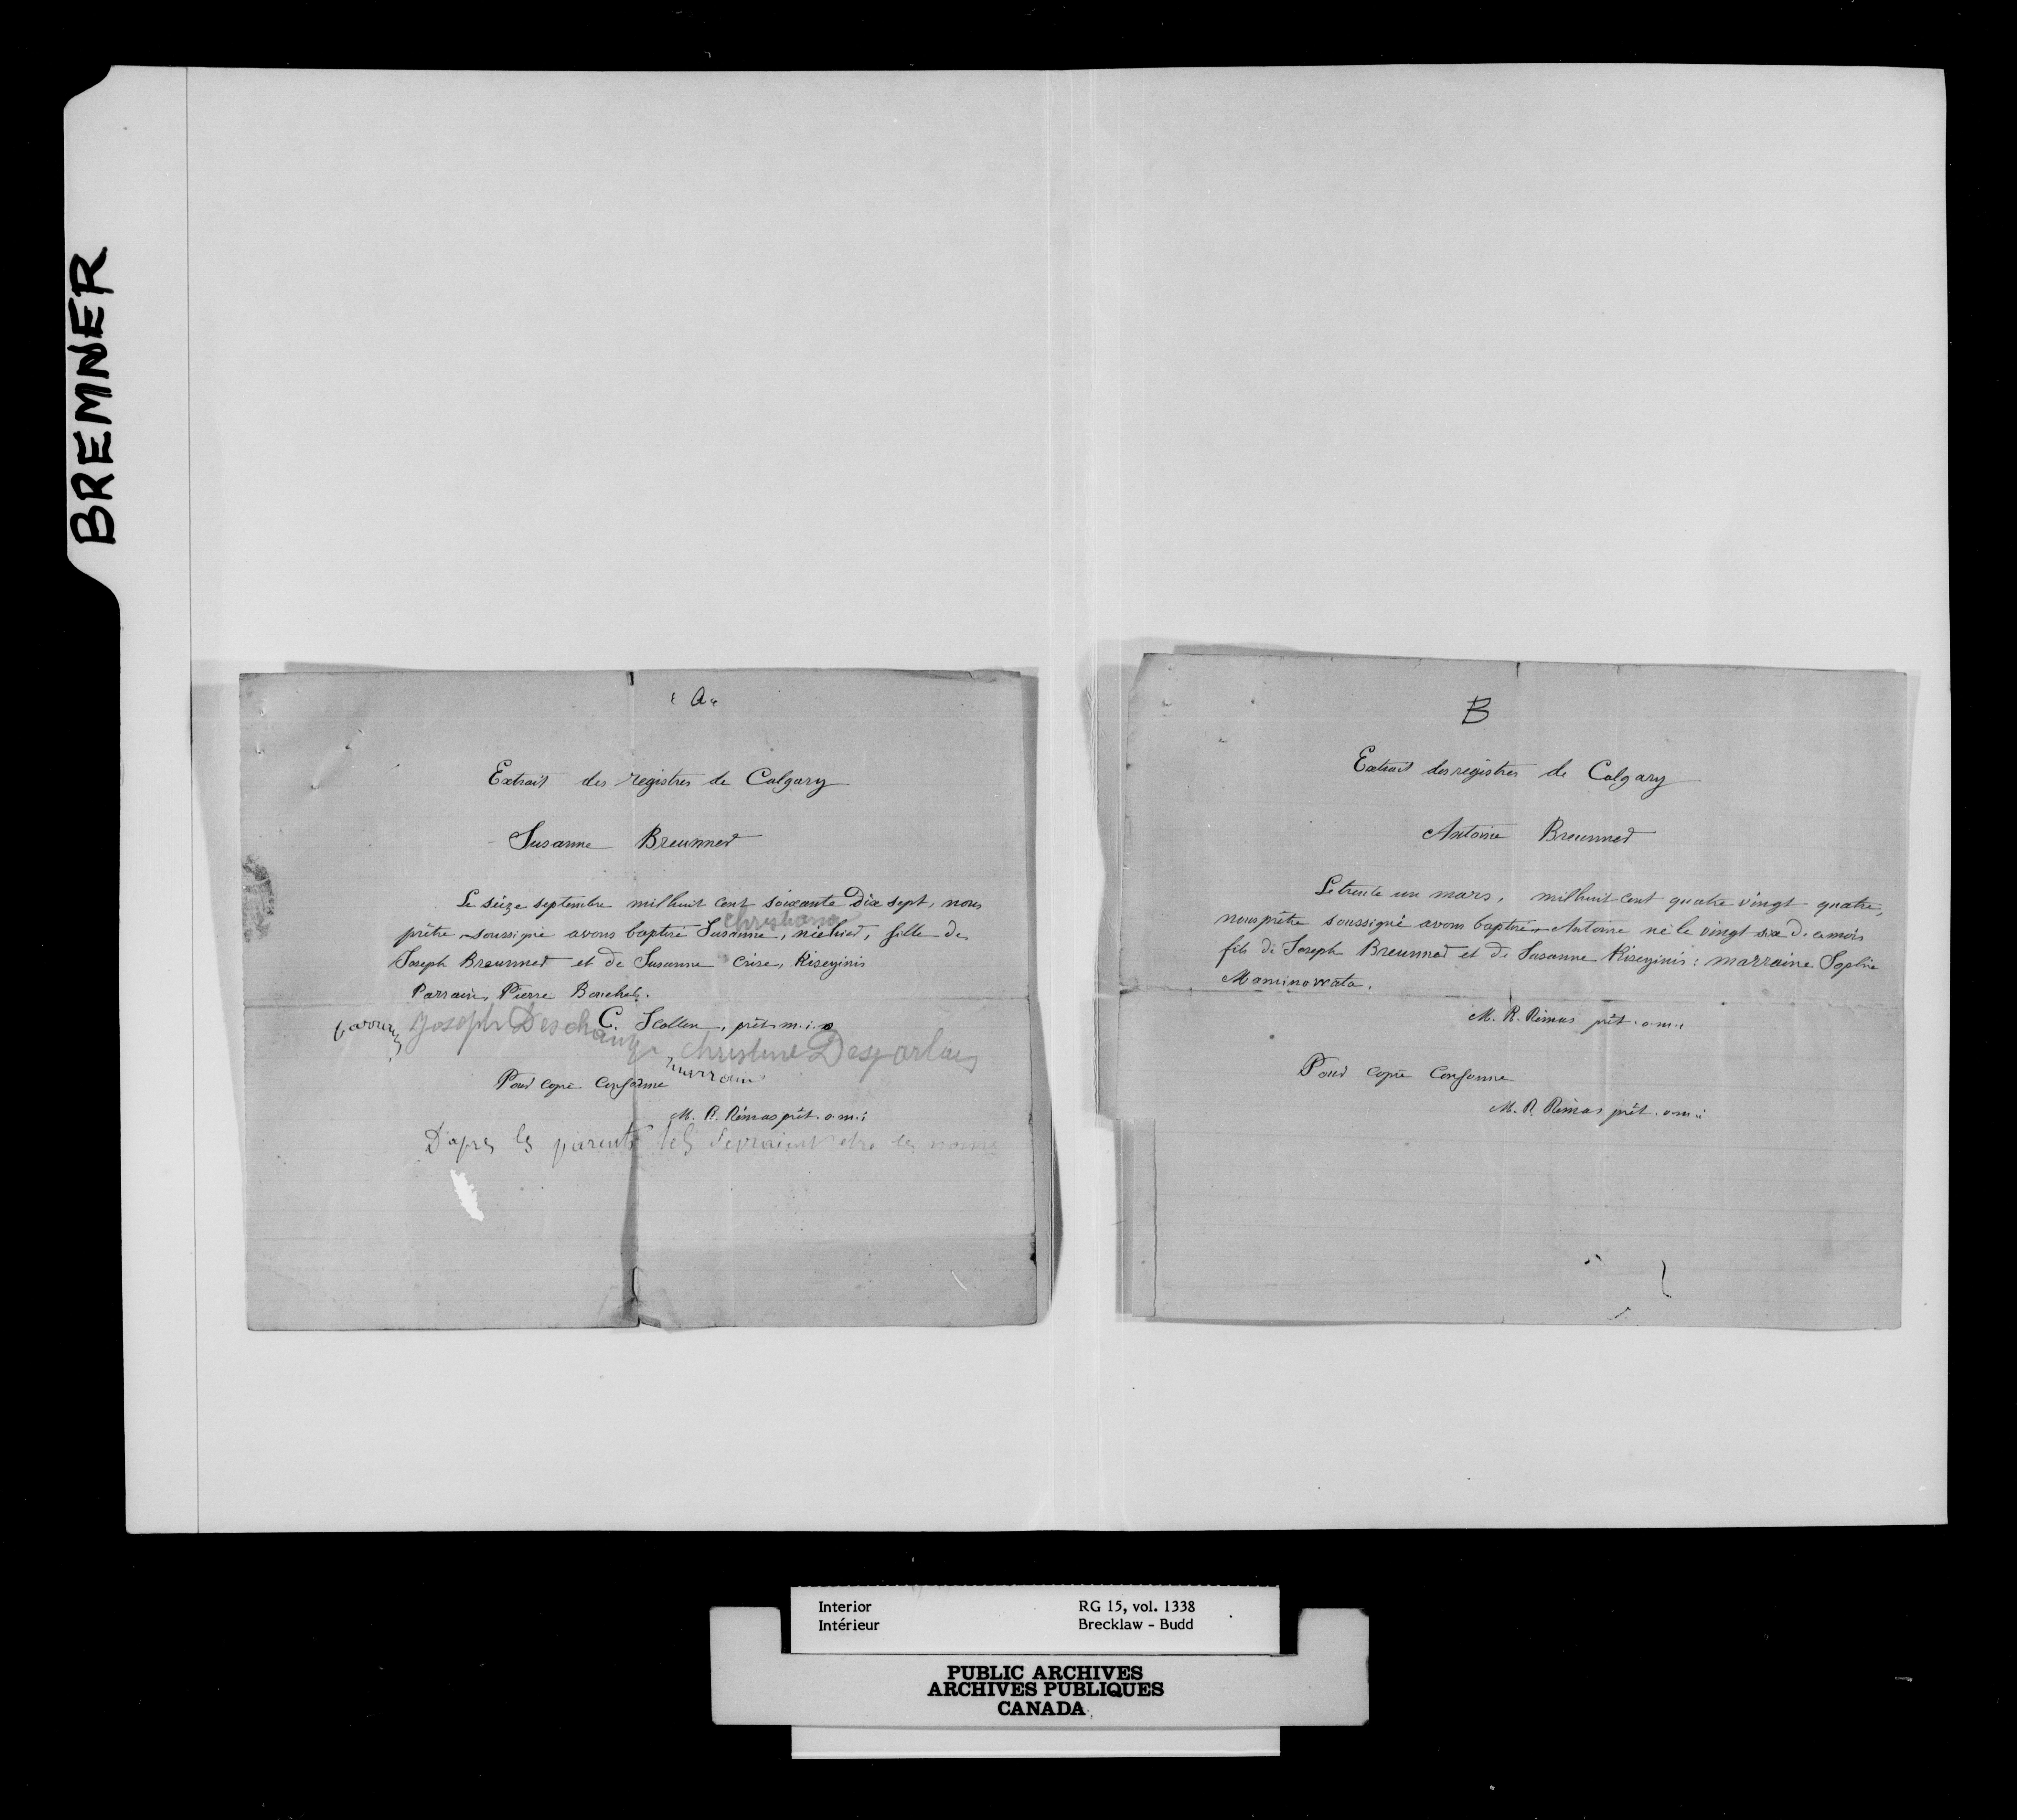 BREMNER
"A"
Extrait des registres de Calgary
Susanne Breunned
Le seize septembre mil huit cent soixante Dix sept, nous
Christiana
prêtre soussigné avons baptisé Susanne, née hier, fille de
Joseph Breunned et de Susanne Crise, Kiseyinis
Parrain, Pierre Bouchet.
C. Scollen, prêt. m. i. o
parrain Joseph Deschamps, Christine Desjarlais
marraine
Pour copie conforme
M. R. Rémas prêt. o.m.i
D'après les parents tels devraient etre les noms
B
Extrait des registres de Calgary
Antoine Breunned
Le trente un mars, mil huit cent quatre vingt quatre,
nous prêtre soussigné avons baptisé Antoine né le vingt six de ce mois
fils de Joseph Breunned et de Susanne Kiseyinis : marraine Sophie
Maminowata.
M. R. Rémas prêt. o.m.i
Pour copie conforme
M. R. Rémas prêt. o.m.i
Interior RG 15, vol. 1338
Intérieur Brecklaw - Budd
PUBLIC ARCHIVES
ARCHIVES PUBLIQUES
CANADA